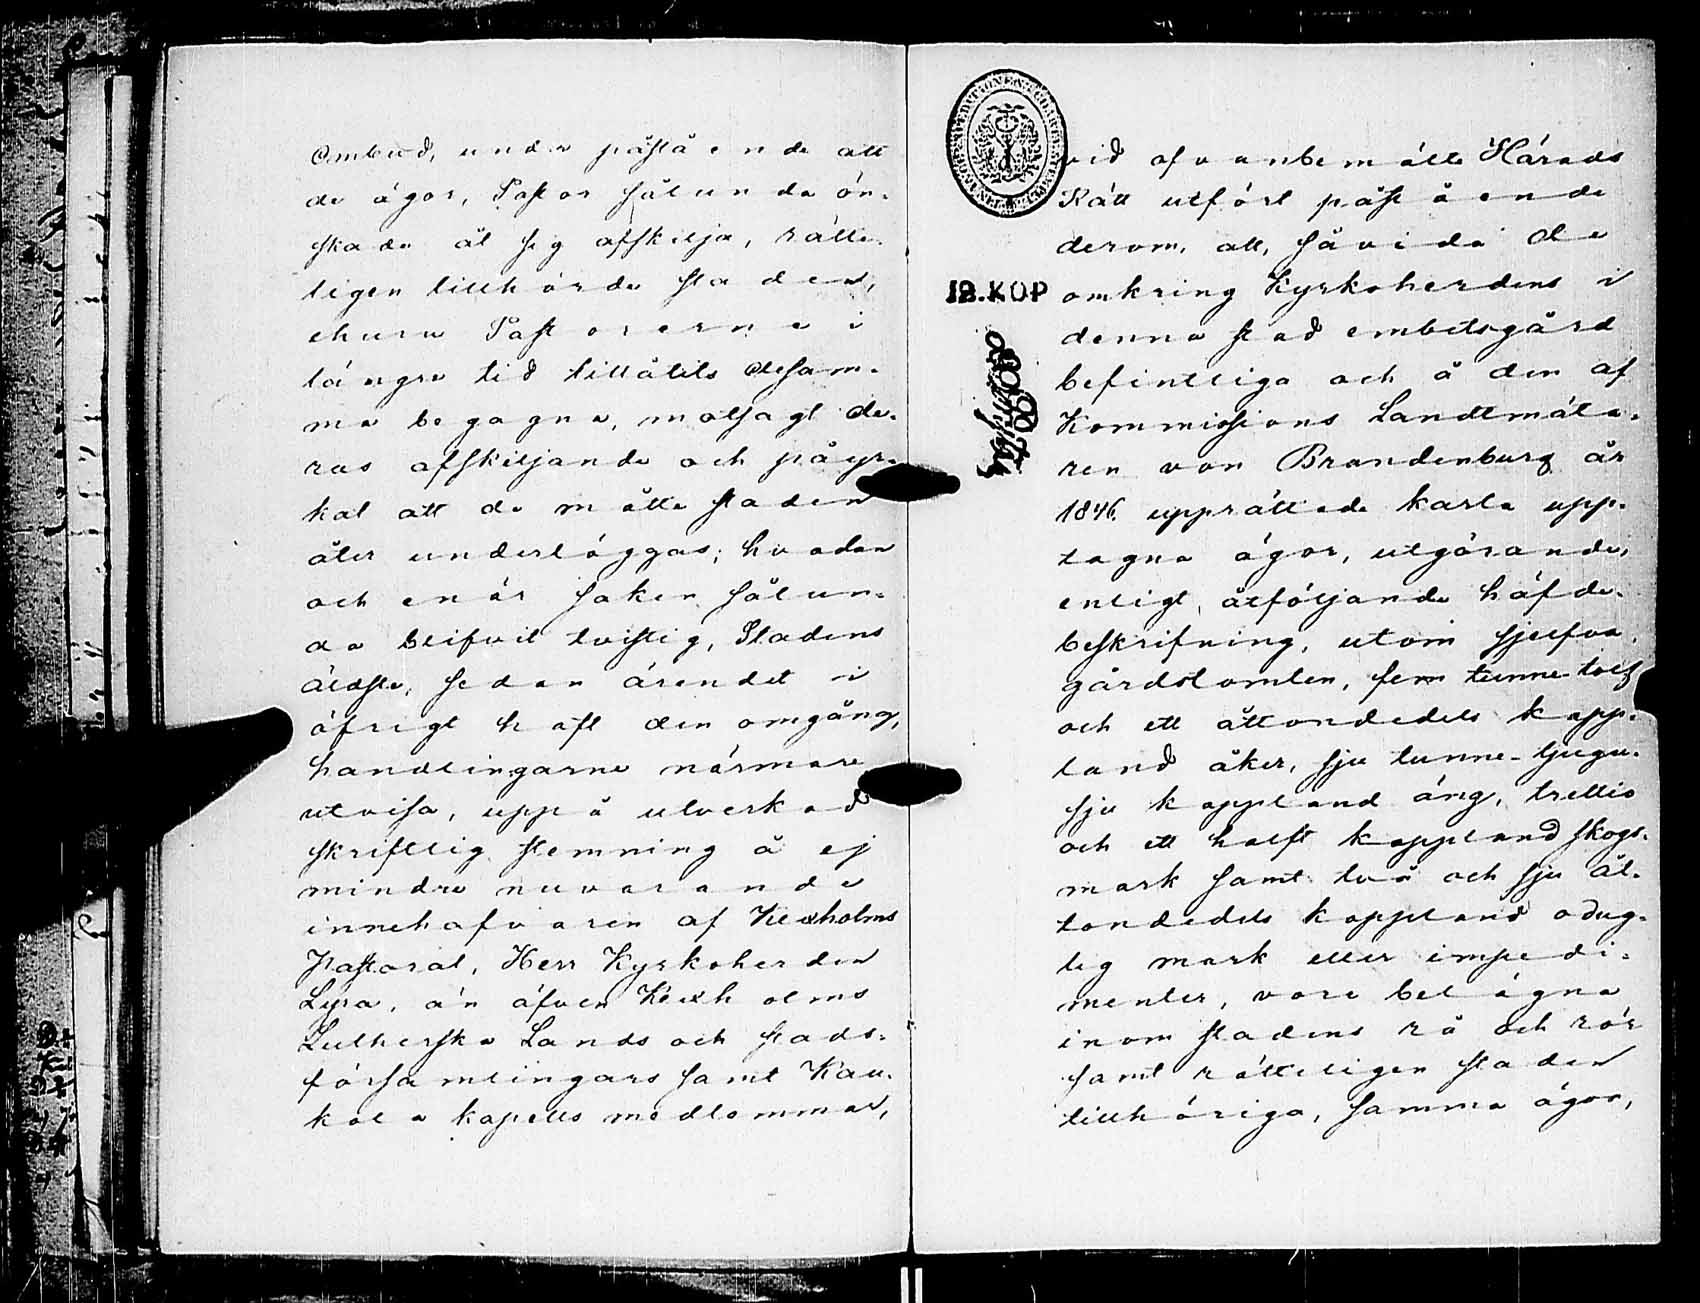 ombud, under påstående att
de ägor, Pastor sålunda ön-
skade åt sig afskilja, rätte-
ligen tillhörde staden,
ehuru Pastorerne i
längre tid tillåtits desam-
ma begagna, motsagt de-
ras afskiljande och påyr-
kat att de måtte staden
åter underläggas; hvadan
och enär saken sålun-
da blifvit tvistig, Stadens
äldste, sedan ärendet i
öfrigt haft den omgång,
handlingarne närmare
utvisa, uppå utverkad
skriftlig stemning å ej
mindre nuvarande
innehafvaren af Kexholms
Pastorat, Herr Kyrkoherden
Lyra, än äfven Kexholms
Lutherska Lands och stads-
församlingars samt Kau-
kola kapells medlemmar,
vid ofvanbemälte Härads
Rätt utfört påstående
derom, att, såvida de
12.KOP omkring Kyrkoherdens i
denna stad embetsgård
befintliga och å den af
Kommissions Landtmäta-
ren von Brandenburg år
1846 upprättade karta upp-
tagna ägor, utgörande,
enligt åtföljande häfde-
beskrifning, utom sjelfva
gårdstomten, fem tunne- tolf
och ett åttondedels kapp-
land åker, sju tunne- tjugu-
sju kappland äng, trettio
och ett halft kappland skogs-
mark samt två och sju åt-
tondedels kappland odug-
lig mark eller impedi-
menter, vore belägna
inom stadens rå och rör
samt rätteligen staden
tillhöriga, samma ägor,